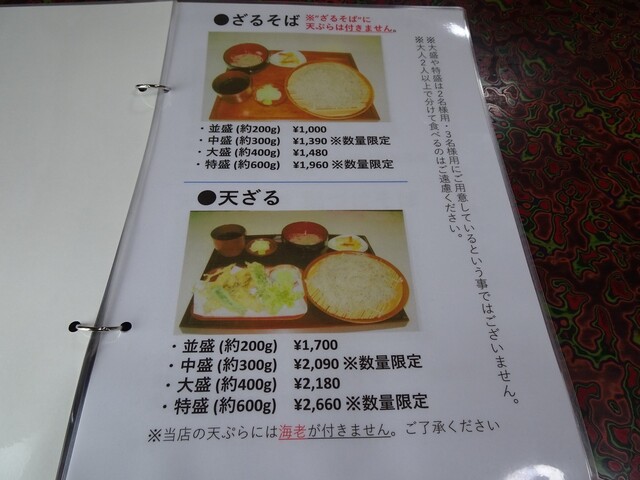 ●ざるそば ※"ざるそば"に
天ぷらは付きません。
・並盛 (約200g) ¥1,000
・中盛 (約300g) ¥1,390 ※数量限定
・大盛 (約400g) ¥1,480
・特盛 (約600g) ¥1,960 ※数量限定
●天ざる
・並盛 (約200g) ¥1,700
・中盛 (約300g) ¥2,090 ※数量限定
・大盛 (約400g) ¥2,180
・特盛 (約600g) ¥2,660 ※数量限定
※当店の天ぷらには海老が付きません。ご了承ください
※大盛や特盛は2名様用・3名様用にご用意しているという事ではございません。
※大人2人以上で分けて食べるのはご遠慮ください。